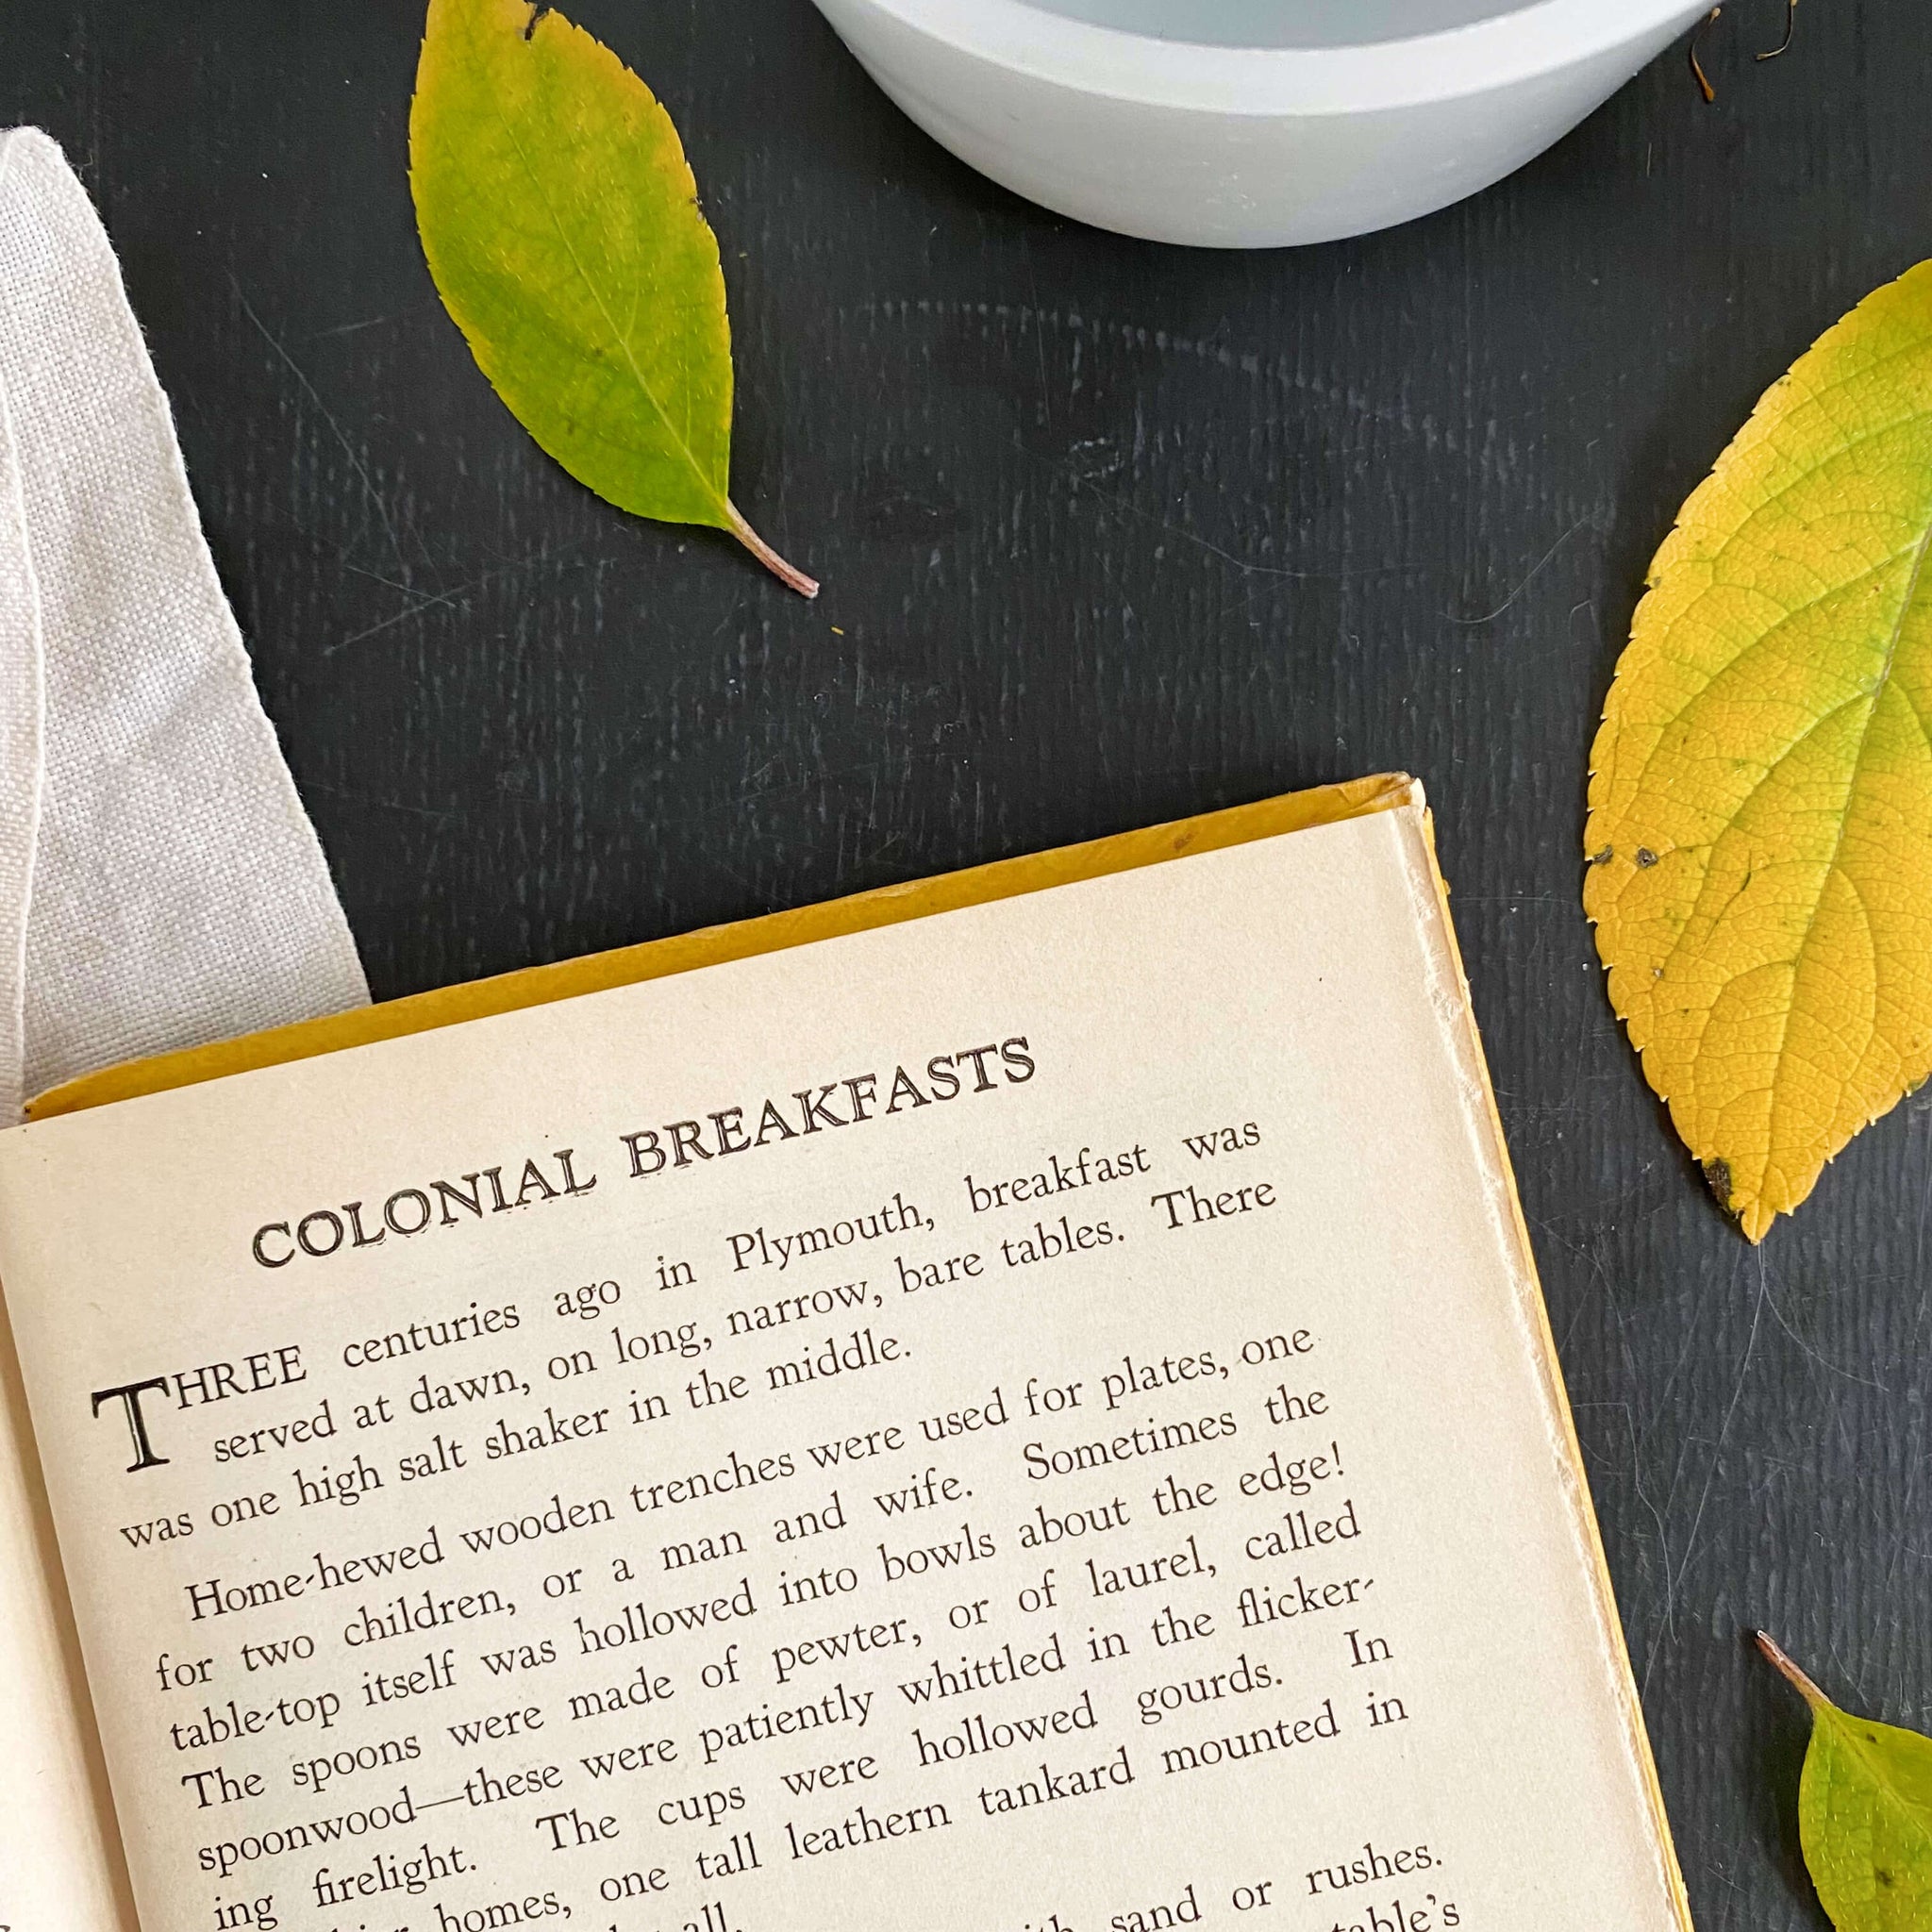 COLONIAL BREAKFASTS
THREE centuries ago in Plymouth, breakfast was
served at dawn, on long, narrow, bare tables. There
was one high salt shaker in the middle.
Home-hewed wooden trenches were used for plates, one
for two children, or a man and wife. Sometimes the
table-top itself was hollowed into bowls about the edge!
The spoons were made of pewter, or of laurel, called
spoonwood—these were patiently whittled in the flicker-
ing firelight. The cups were hollowed gourds. In
homes, one tall leathern tankard mounted in
all.
sand or rushes.
table's